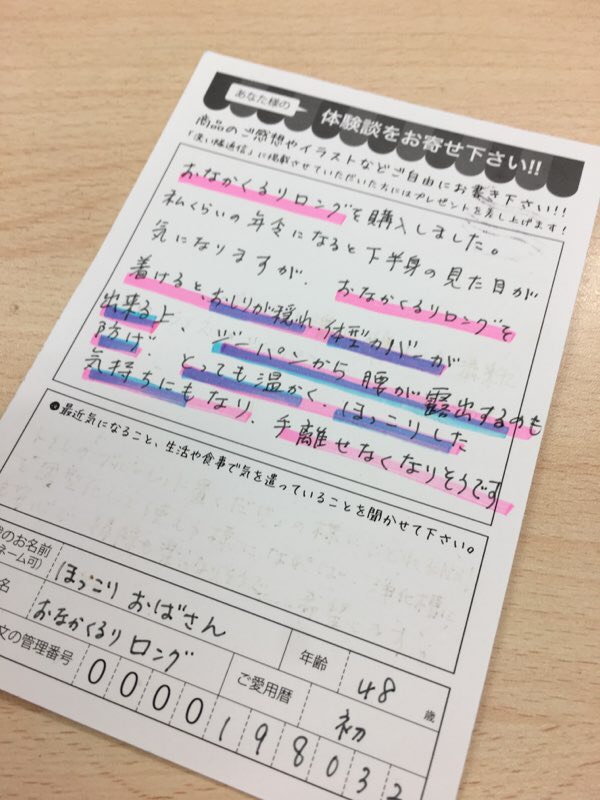 あなた様の
体験談をお寄せ下さい!!
商品のご感想やイラストなどご自由にお書き下さい!!
に掲載させていただいた方にはプレゼントを差し上げます!
おなかくるりロングを購入しました。
私くらいの年令になると下半身の見た目が
気になりますが、おなかくるりロングを
着けると、おしりが穏れ、体型カバーが
出来ると、ジーパンから腰が露出するのも
防げ、とっても温かく、ほっこりした
気持ちにもなり、手離せなくなりそうです
●最近気になること、生活や食事で気を遣っていることを聞かせて下さい。
のお名前
ネーム可)
ほっこりおばさん
年齢
48
歳
名
おなかくるりロング
ご愛用暦
初
文の管理番号
0000198032